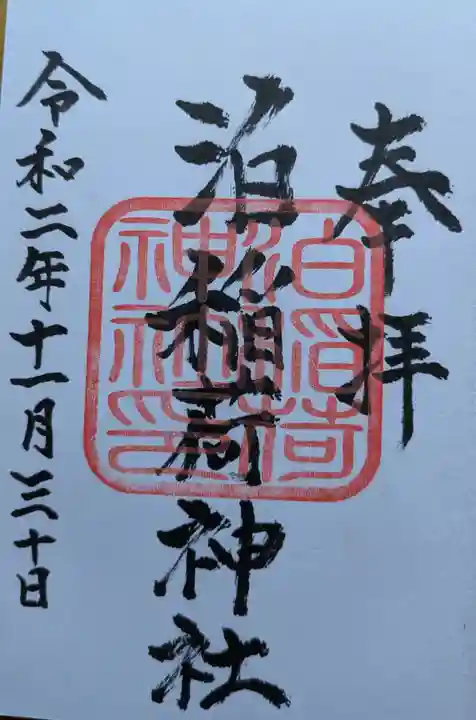 奉拝
泊稲荷神社
泊稲荷
神社印
令和二年十一月三十日